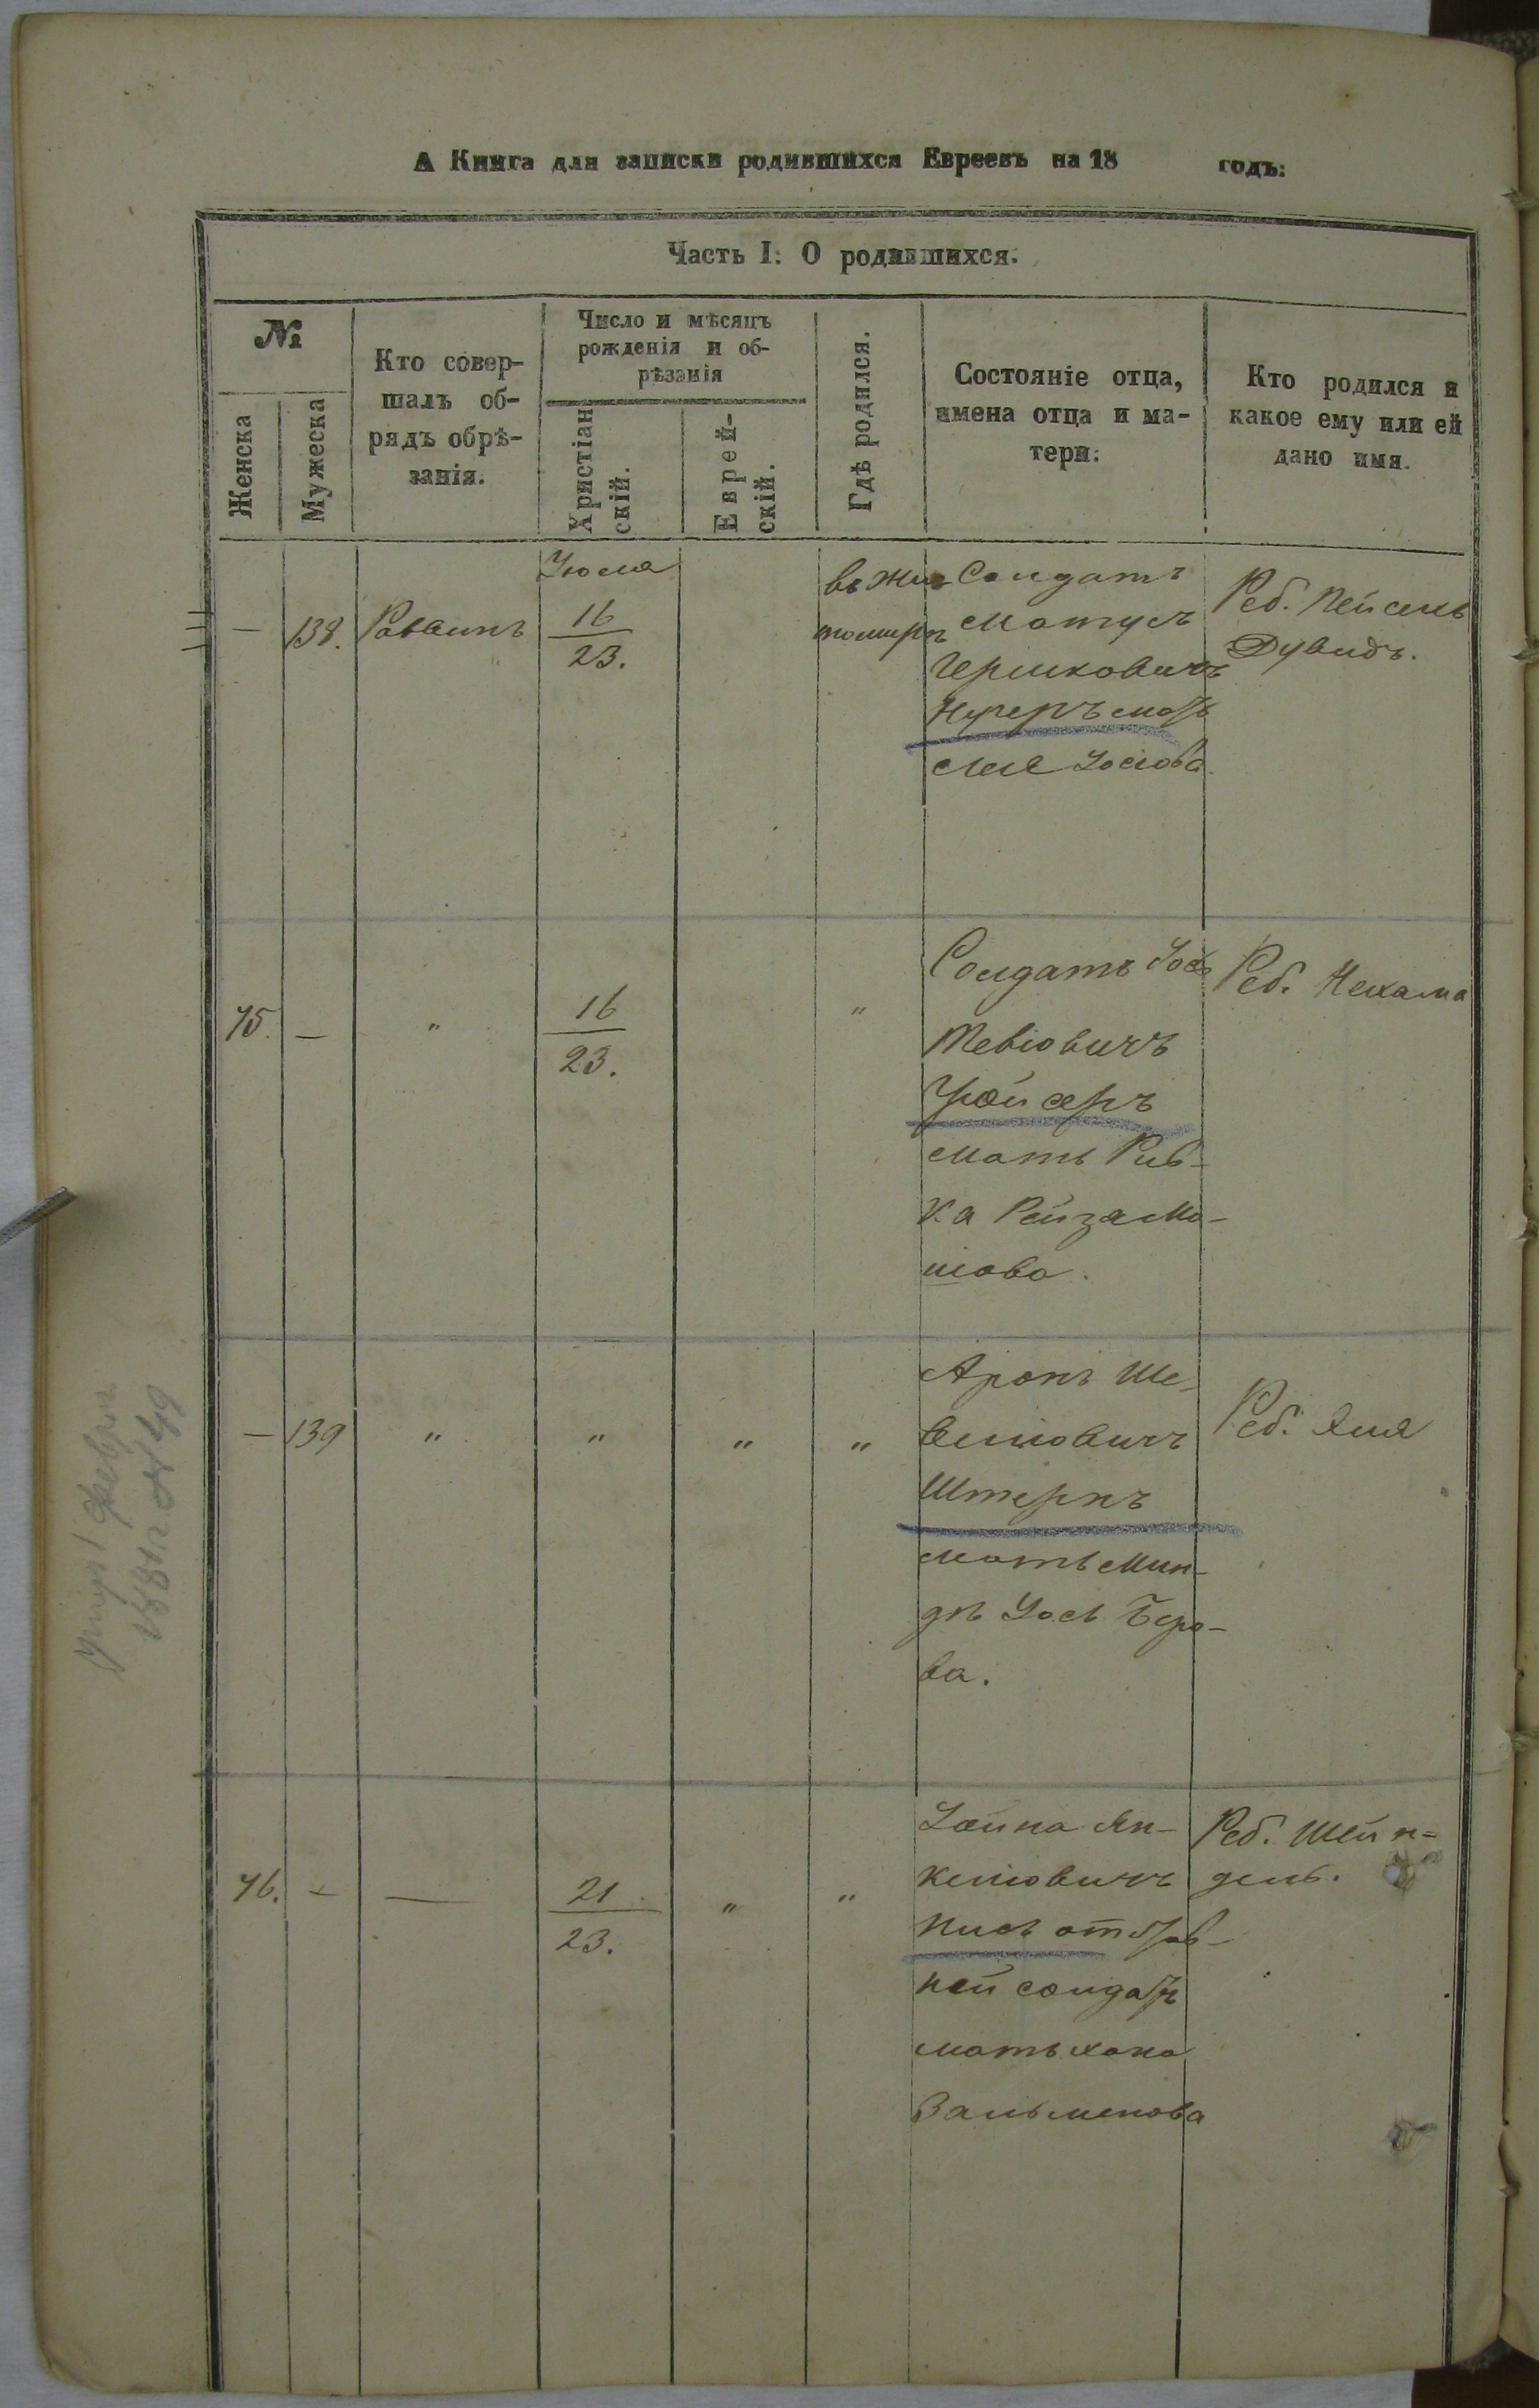 А Книга для записки родившихся Евреевъ на 18 годъ:
Часть I: О родившихся.
№
Женска
Мужеска
Кто совер-
шалъ об-
рядъ обрѣ-
занія.
Число и мѣсяцъ
рожденія и об-
рѣзанія
Христіан
скій.
Еврей-
скій.
Гдѣ родился.
Состояніе отца,
имена отца и ма-
тери:
Кто родился и
какое ему или ей
дано имя.
—
138.
Раввинъ
Іюля
16
23.
въ Жи-
томирѣ
Солдатъ
Мотусъ
Гершковичъ
мать
Іосіова
Реб. Пейсель
Дувидъ.
75.
—
"
16
23.
"
Солдатъ Іось
Тевіовичъ
мать Рив-
ка Рейза Мо-
шова.
Реб. Нехама
—
139
"
"
"
"
Аронъ Ше-
Штернъ
мать Мин-
дѣ Іось Беро-
ва.
Реб.
1881 г. № 49
76.
—
—
21
23.
"
"
Ян-
келіовичъ
Кись отстав-
ной солдатъ
мать Хана
Зальменова
Реб. Шейн=
дель.